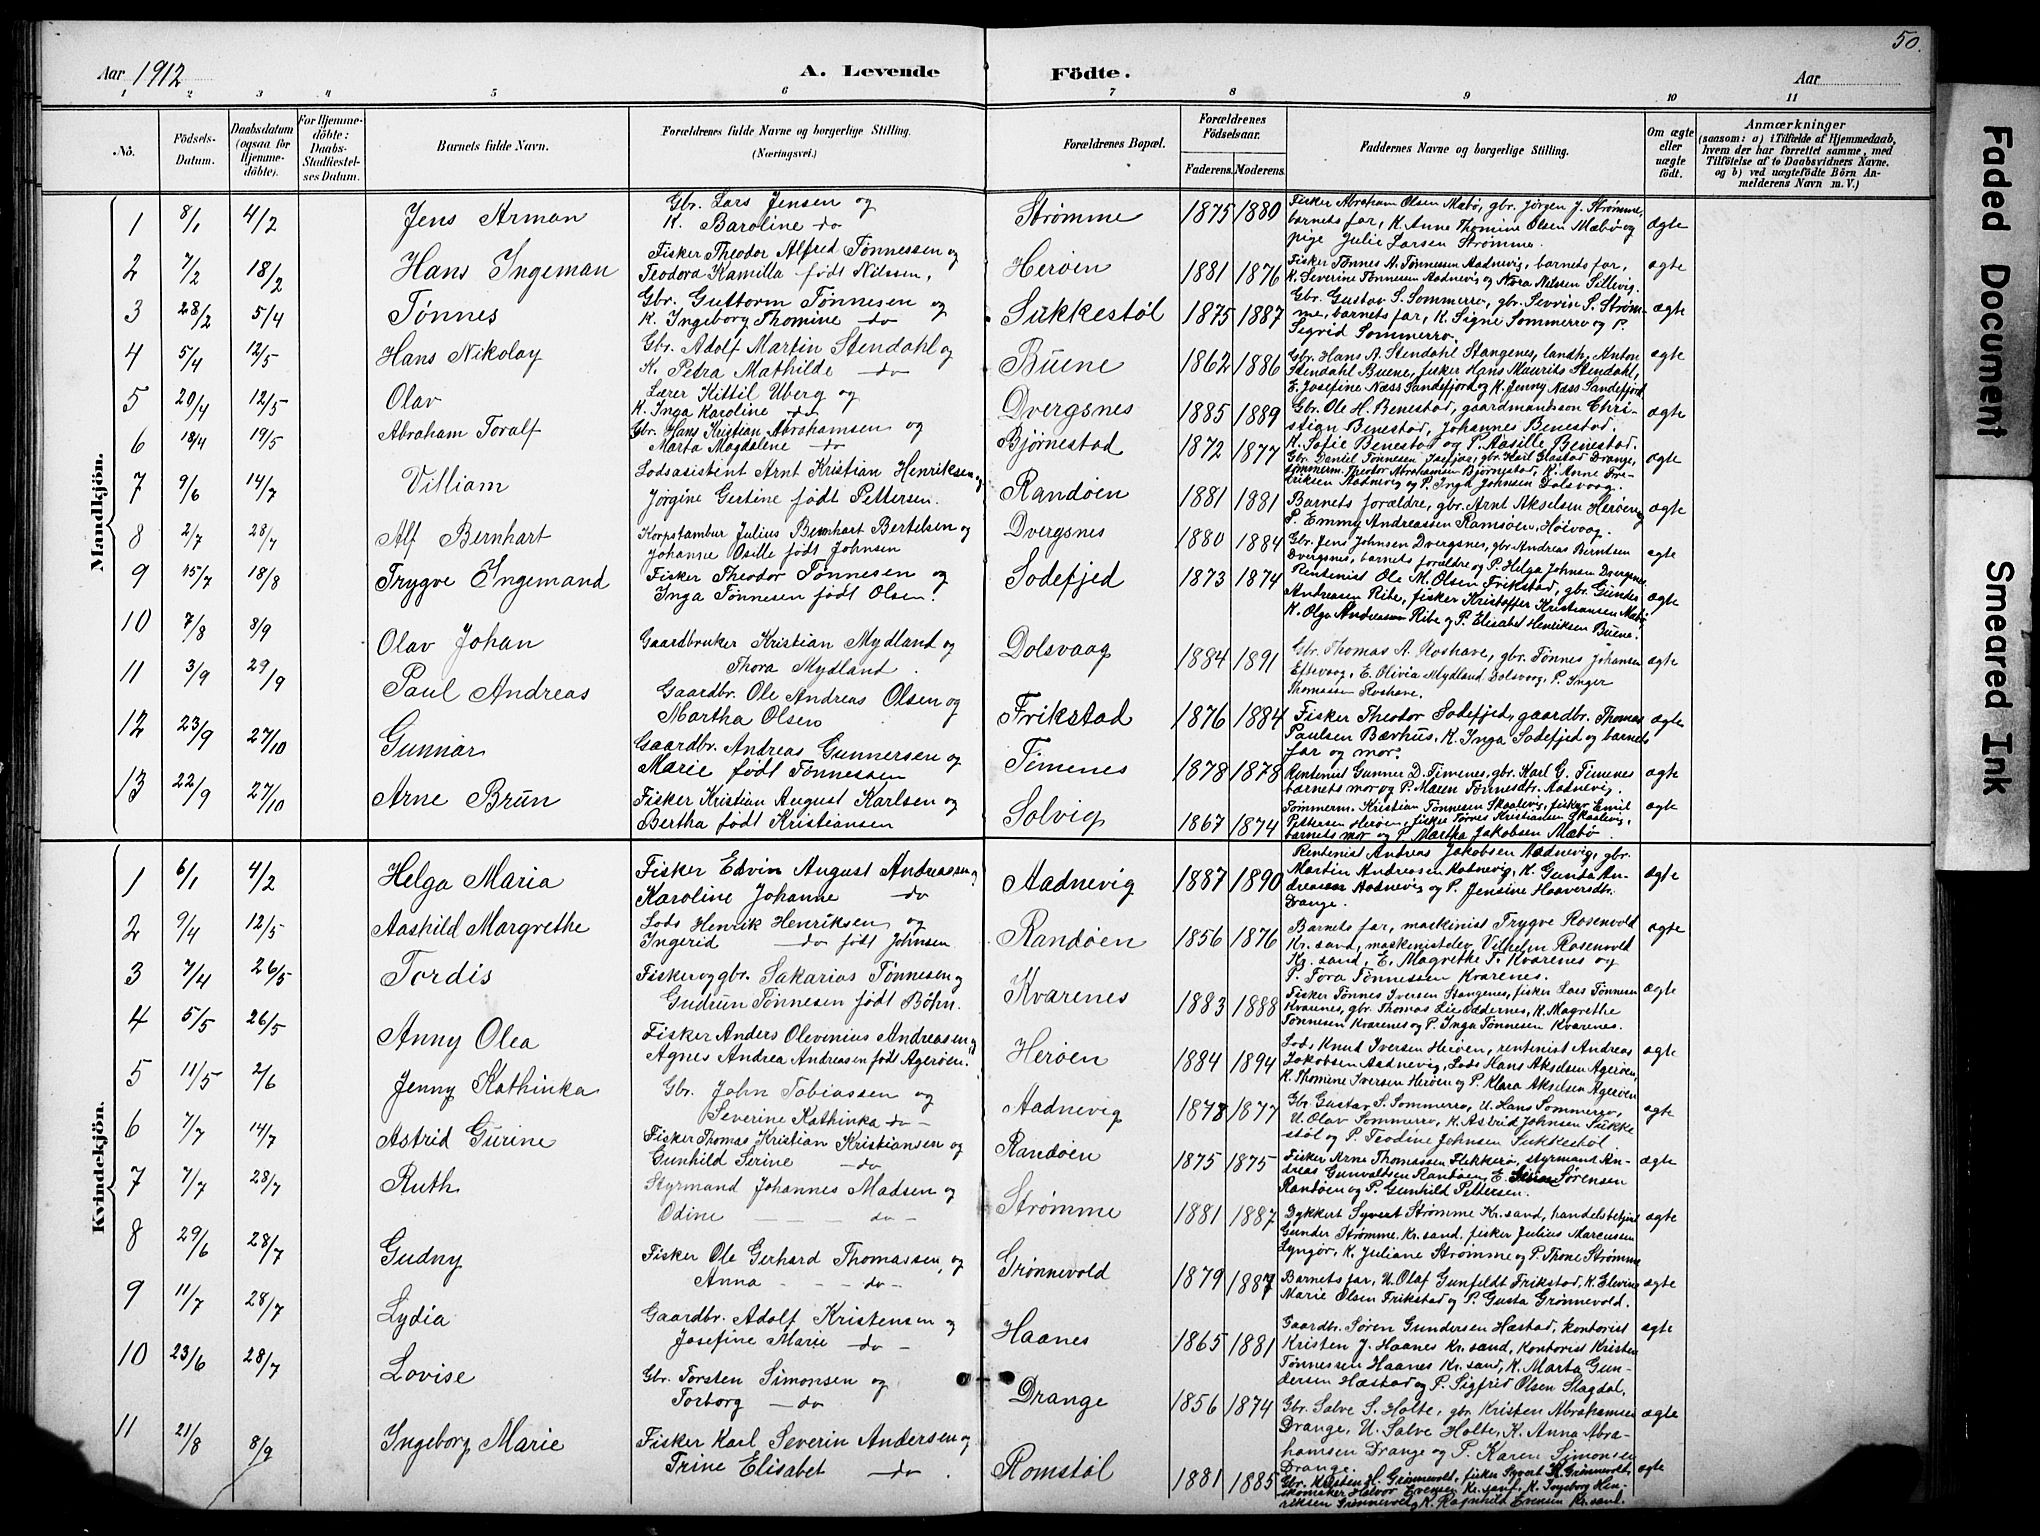 50.
Aar 1912
A. Levende Födte.
Aar
1 2 3 4 5 6 7 8 9 10 11
No.
Födsels-Datum.
Daabsdatum (ogsaa for Hjemmedöbte).
For Hjemmedöbte: Daabs-Stadfæstelses Datum.
Barnets fulde Navn.
Forældrenes fulde Navne og borgerlige Stilling. (Næringsvei.)
Forældrenes Bopæl.
Forældrenes Födselsaar. Faderens. Moderens.
Faddernes Navne og borgerlige Stilling.
Om ægte eller uægte født.
Anmærkninger (saasom: a) i Tilfælde af Hjemmedaab, hvem der har forrettet samme, med Tilføielse af to Daabsvidners Navne. og b) ved uægtefödte Börn Anmelderens Navn m. V.)
Mandkjön.
1 8/1 4/2 Jens Arman Gbr. Lars Jensen og K. Baroline do Strømme 1875 1880 Fisker Abraham Olsen Mæbø, gbr. Jörgen J. Strømme, barnets far, K. Anne Thomine Olsen Mæbø og pige Julie Larsen Strømme. ægte
2 7/2 18/2 Hans Ingeman Fisker Theodor Alfred Tønnessen og Teodora Kamilla født Nilsen, Herøen 1881 1876 Fisker Tønnes A. Tønnesen Aadnevig, barnets far, K. Severine Tønnesen Aadnevig og Nora Nilsen Sillevig. ægte
3 28/2 5/4 Tønnes Gbr. Guttorm Tønnesen og K. Ingeborg Thomine do Sukkestøl 1875 1887 Gbr. Gustav S. Sommerro, gbr. Sevrin S. Strømme, barnets far, K. Signe Sommerro og P. Sigrid Sommerro. ægte
4 5/4 12/5 Hans Nikolay Gbr. Adolf Martin Stendahl og K. Petra Mathilde do Buene 1862 1886 Gbr. Hans A. Stendahl Stangenes, landh. Anton Stendahl Buene, fisker Hans Maurits Stendahl, E. Josefine Næss Sandefjord og K. Jenny Næss Sandefjord ægte
5 20/4 12/5 Olav Lærer Kittil Uberg og K. Inga Karoline do Dvergsnes 1885 1889 Gbr. Ole H. Benestad, gaardmandssøn Christian Benestad, Johannes Benestad. K. Sofie Benestad og P. Aasille Benestad. ægte
6 18/4 19/5 Abraham Toralf Gbr. Hans Kristian Abrahamsen og Marta Magdalene do Bjørnestad 1872 1877 Gbr. Daniel Tønnesen, gbr. Karl Gustad Drange, tømmerm. Theodor Abrahamsen Bjørnestad, K. Anne Fredriksen Aadnevig og P. Inga Johnsen Dolsvaag. ægte
7 9/6 14/7 Villiam Lodsasistent Arnt Kristian Henriksen og Jørgine Gertine født Pettersen. Randøen 1881 1881 Barnets forældre, gbr. Arnt Akselsen Herøen og P. Emmy Andreassen Ramsøen, Høivaag. ægte
8 2/7 28/7 Alf Bernhart Korpstambur Julius Bernhart Bertelsen og Johanne Osille født Johnsen Dvergsnes 1880 1884 Gbr. Jens Johnsen Dvergsnes, gbr. Andreas Berntsen Dvergsnes, barnets forældre og P. Helga Johnsen Dvergsnes ægte
9 15/7 18/8 Trygve Ingemand Fisker Theodor Tønnesen og Inga Tønnesen født Olsen. Sodefjed 1873 1874 Rentenist Ole M. Olsen Frikstad, gbr. Gunder Andreasen Ribe, fisker Kristoffer Kristiansen Mæbø, K. Olga Andreasen Ribe og P. Elisabet Henriksen Buene. ægte
10 7/8 8/9 Olav Johan Gaardbruker Kristian Mydland og Thora Mydland Dolsvaag 1884 1891 Gbr. Thomas A. Roshave, gbr. Tønnes Johansen Eftevaag, E. Olivia Mydland Dolsvaag, P. Inger Thomassen Roshave. ægte
11 3/9 29/9 Paul Andreas Gaardbr. Ole Andreas Olsen og Martha Olsen Frikstad 1876 1884 Fisker Theodor Sodefjed, gaardbr. Thomas Paulsen Bærhus, K. Inga Sodefjed og barnets far og mor. ægte
12 23/9 27/10 Gunnar Gaardbr. Andreas Gunnersen og Marie født Tønnessen Timenes 1878 1878 Rentenist Gunner D. Timenes, gbr. Karl G. Timenes barnets mor og P. Maren Tønnesdtr. Aadnevig. ægte
13 22/9 27/10 Arne Brun Fisker Kristian August Karlsen og Bertha født Kristiansen Solvig 1867 1874 Tømmerm. Kristian Tønnesen Skaalevig, fisker Emil Pettersen Herøen, fisker Tønnes Kristiansen Skaalevig, barnets mor og P. Martha Jakobsen Mæbø. ægte
Kvindekjön.
1 6/1 4/2 Helga Maria Fisker Edvin August Andreassen og Karoline Johanne do Aadnevig 1887 1890 Rentenist Andreas Jakobsen Aadnevig, gbr. Martin Andreasen Aadnevig, K. Gunda Andreasen Aadnevig og P. Jensine Haaversdtr. Drange. ægte
2 9/4 12/5 Aashild Margrethe Lods Henrik Henriksen og Ingerid do født Johnsen Randøen 1856 1876 Barnets far, maskinist Trygve Rosenvold Kr. sand, maskenistelev Vilhelm Rosenvold Kr. sand, E. Magrethe T. Kvarenes og P. Tora Tønnessen Kvarenes. ægte
3 7/4 26/5 Tordis Fisker og gbr. Sakarias Tønnesen og Gudrun Tønnesen født Bøhn. Kvarenes 1883 1888 Fisker Tønnes Iversen Stangenes, fisker Lars Tønnesen Kvarenes, gbr. Thomas Lie Oddernes, K. Magrethe Tønnesen Kvarenes og P. Inga Tønnesen Kvarenes. ægte
4 5/5 26/5 Anny Olea Fisker Anders Olevinius Andreasen og Agnes Andrea Andreasen født Agerøen. Herøen 1884 1894 Lods Knud Iversen Herøen, rentenist Andreas Jakobsen Aadnevig, Lods Hans Akselsen Agerøen, K. Thomine Iversen Herøen og P. Klara Akselsen Agerøen ægte
5 11/5 2/6 Jenny Kathinka Gbr. John Tobiassen og Severine Kathinka do Aadnevig 1878 1877 Gbr. Gustav S. Sommerro, U. Hans Sommerro, U. Olav Sommerro, K. Astrid Johnsen Sukkestøl og P. Teodine Johnsen Sukkestøl. ægte
6 7/7 14/7 Astrid Gurine Fisker Thomas Kristian Kristiansen og Gunhild Serine do Randøen 1875 1875 Fisker Arne Thomassen Flekkerø, styrmand Andreas Gunvaldsen Randøen, E. Sørensen Randøen og P. Gunhild Pettersen. ægte
7 7/7 28/7 Ruth Styrmand Johannes Madsen og Odine do Strømme 1881 1887 Dykkert Syvert Strømme Kr. sand, handelsbetjent Gunder Strømme Kr. sand, fisker Julius Marcussen Lyngør, K. Juliane Strømme og P. Thone Strømme ægte
8 29/6 28/7 Gudny Fisker Ole Gerhard Thomassen og Anna do Grønnevold 1879 1887 Barnets far, U. Olaf Gunfeldt Frikstad, K. Elevine Marie Olsen Frikstad og P. Gusta Grønnevold. ægte
9 11/7 28/7 Lydia Gaardbr. Adolf Kristensen og Josefine Marie do Haanes 1865 1881 Gaardbr. Søren Gundersen Hæstad, kontorist Kristen J. Haanes Kr. sand, kontorist Kristen Tønnessen Haanes Kr. sand, K. Marta Gundersen Hæstad og P. Sigfrid Olsen Slagdal, ægte
10 23/6 28/7 Lovise Gbr. Torsten Simonsen og Torborg do Drange 1856 1874 Gbr. Salve S. Holte, gbr. Kristen Abrahamsen Drange, U. Salve Holte, K. Anna Abrahamsen Drange og P. Karen Simonsen Drange. ægte
11 21/8 8/9 Ingeborg Marie Fisker Karl Severin Andersen og Trine Elisabet do Romstøl 1881 1885 Gbr. Kristen H. Grønnevolt, fisker Syvert K. Grønnevolt, skomaker Halvor Evensen Kr. sand, K. Ingeborg Henriksen Grønnevold, K. Ragnhild Evensen Kr. sand. ægte
Faded Document
Smeared Ink